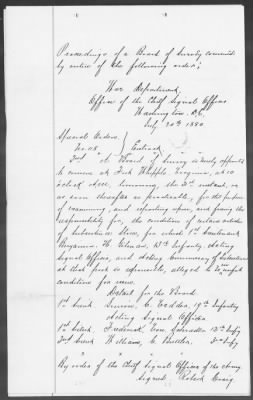 Proceedings of a Board of Survey convened
by virtue of the following order;
War Department,
Office of the Chief Signal Officer
Washington, D.C.,
July 20th 1880
Special Orders,
No. 118
Extract
2nd A Board of Survey is hereby appointed
to convene at Fort Whipple, Virginia, at 10
o'clock A.M. tomorrow, the 21st instant, or
as soon thereafter as practicable, for the purpose
of examining, and reporting upon, and fixing the
responsibility for, the condition of certain articles
of subsistence stores, for which 1st Lieutenant
Benjamin H. Gilman, 13th Infantry, Acting
Signal Officer, and Acting Commissary of Subsistence
at that post is responsible, alleged to be in unfit
condition for issue.
Detail for the Board
1st Lieut. C. 19th Infantry
Acting Signal Officer
1st Lieut. Frederick Von Schrader 12th Infy
2nd Lieut. William C. 2nd Infy
" " " " "
By order of the Chief Signal Officer of the Army
Signed Robert Craig